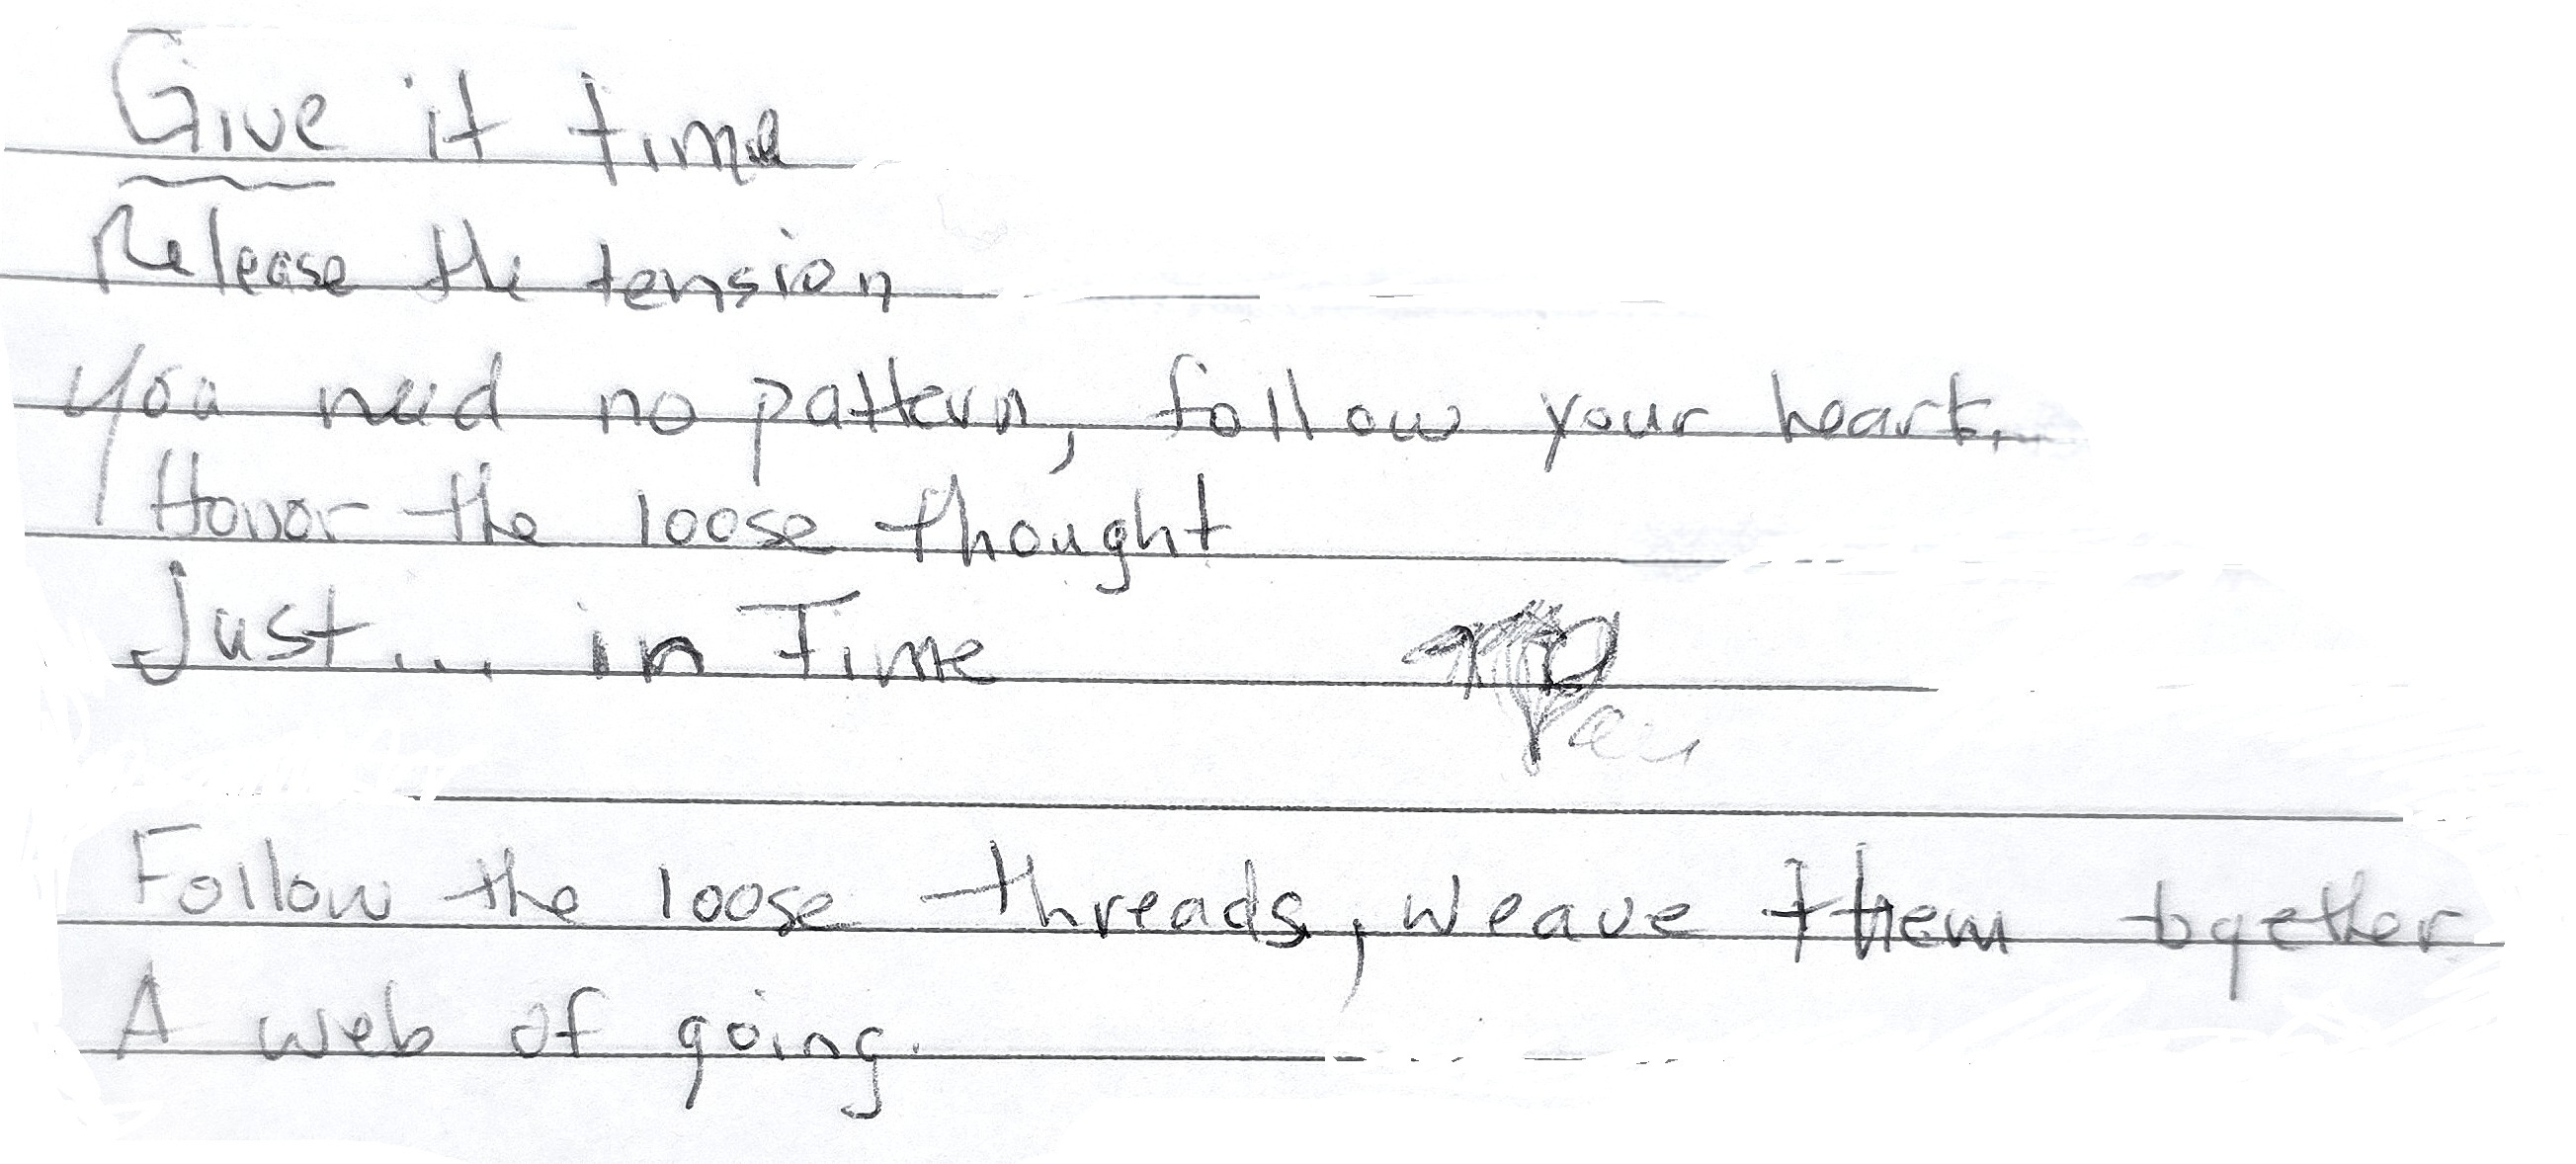 Give it time
Release the tension
You need no pattern, follow your heart.
Honor the loose thought
Just... in Time
Follow the loose threads, weave them together
A web of going.